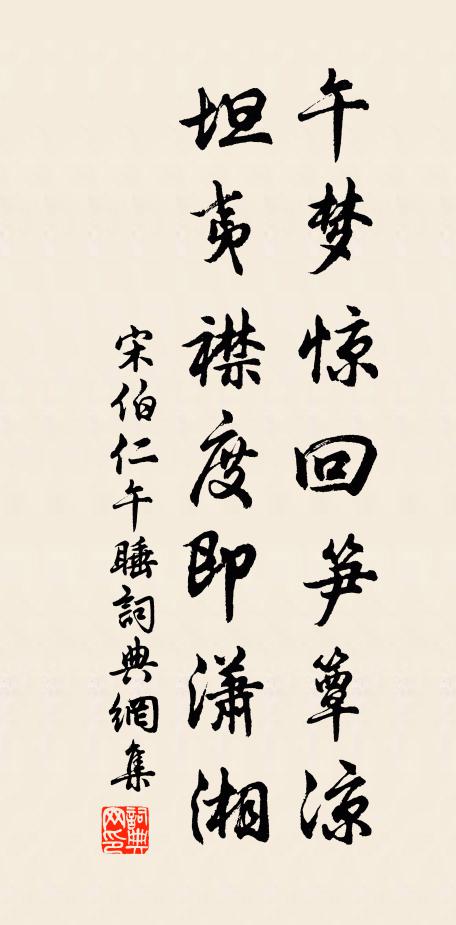 午梦惊回笋簟凉
坦夷襟度即瀟湘
宋伯仁午睡詞典網集
詞典网印